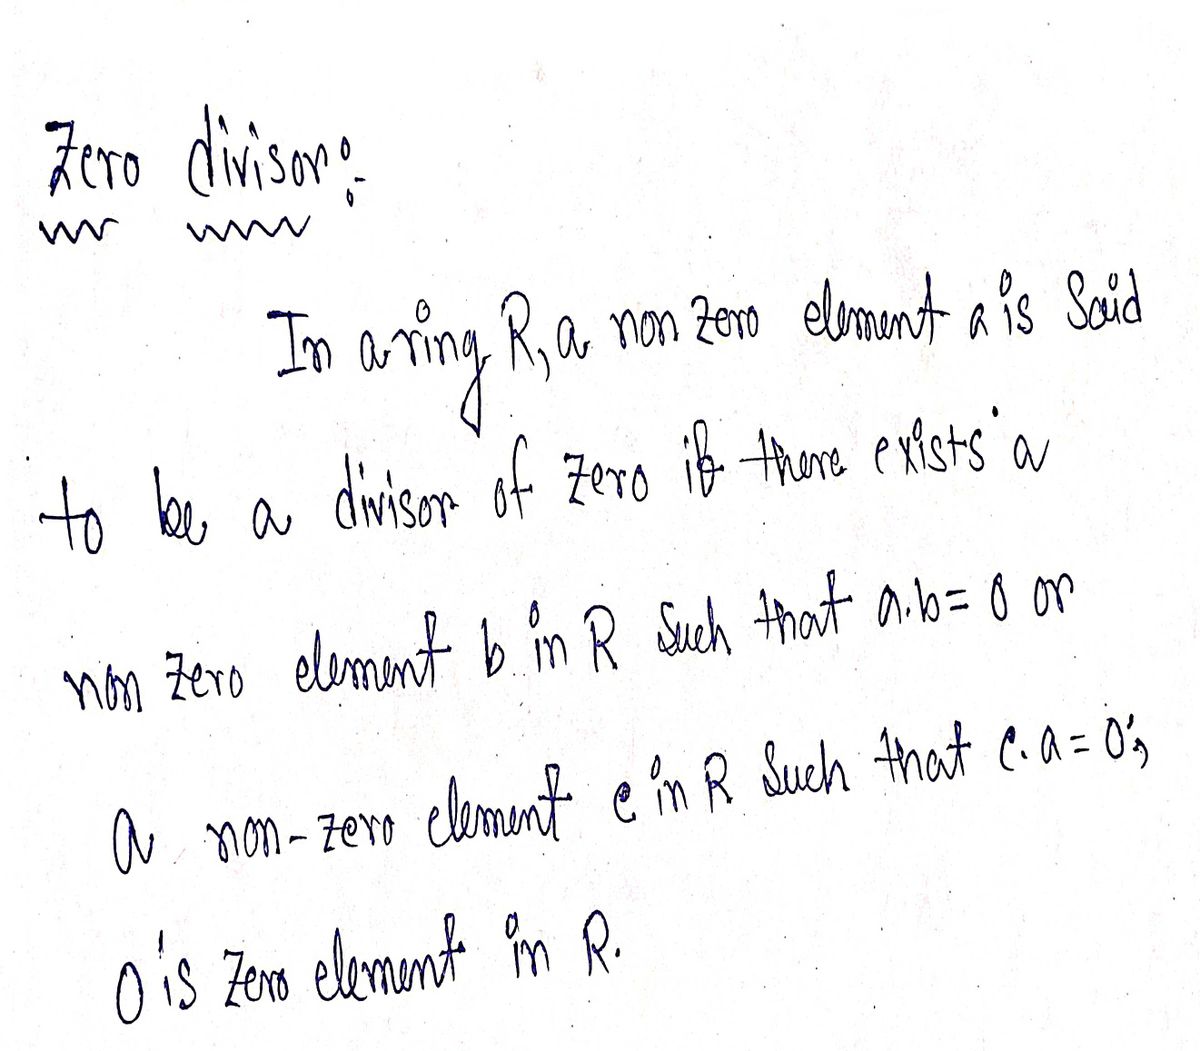 Zero divisor:-
In a ring R, a non zero element a is Said
to be a divisor of zero if there exists a
non zero element b in R Such that a.b = 0 or
a non-zero element c in R Such that c.a = 0,
0 is Zero element in R.